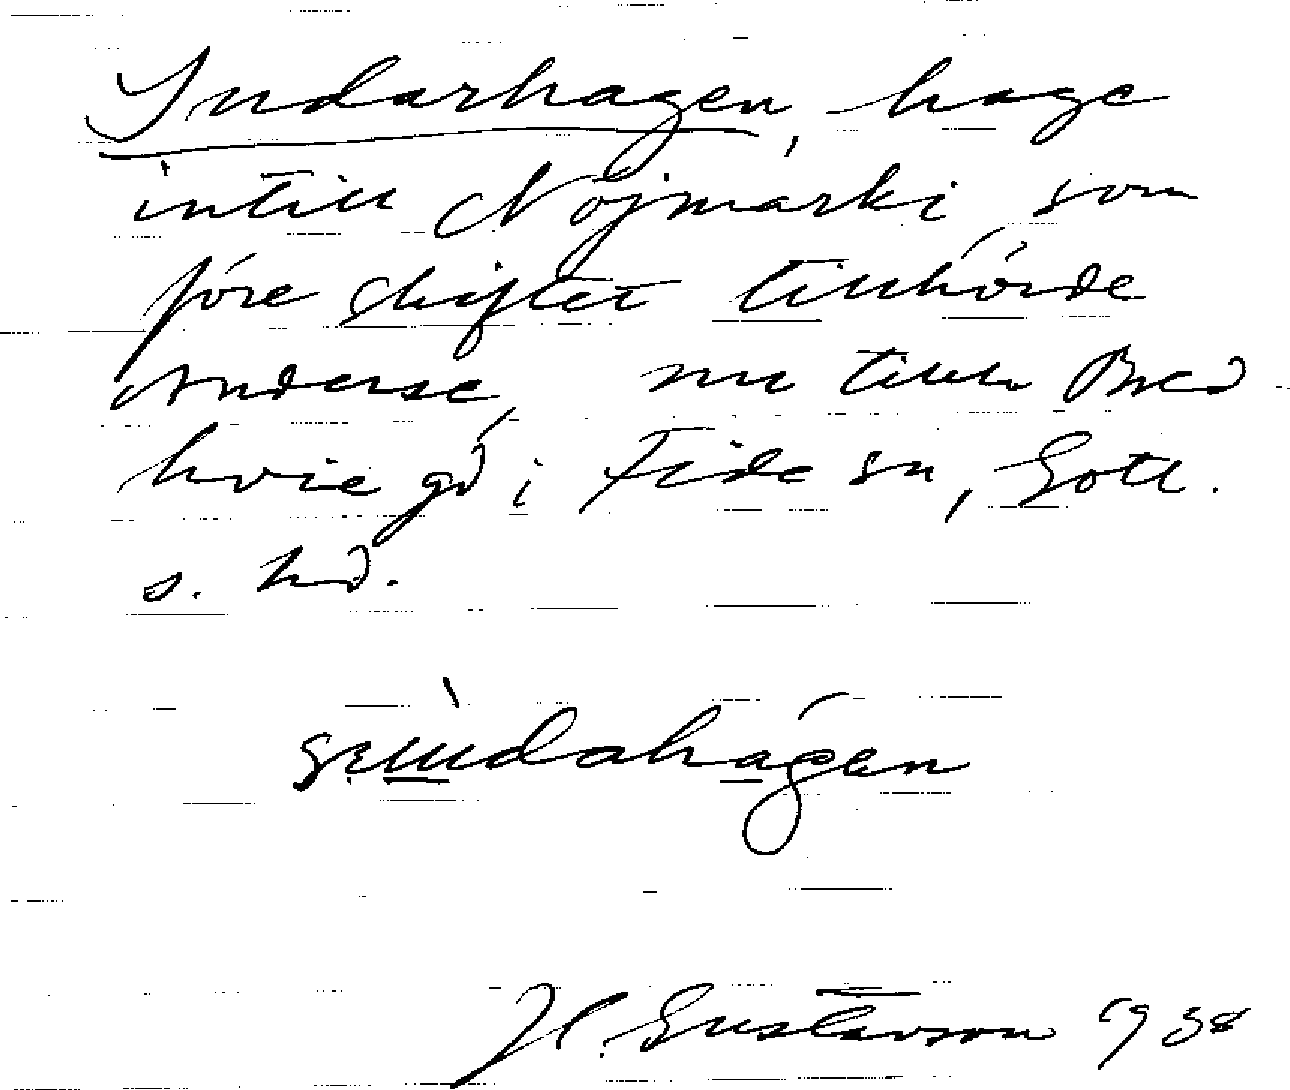 Sudarhagen, hage
intill Nöjmarki som
före skiftet tillhörde
Anderse, nu tillh Bred
kvie gd i Fide sn, Gotl.
s. hd.
H. Gustavson 1938